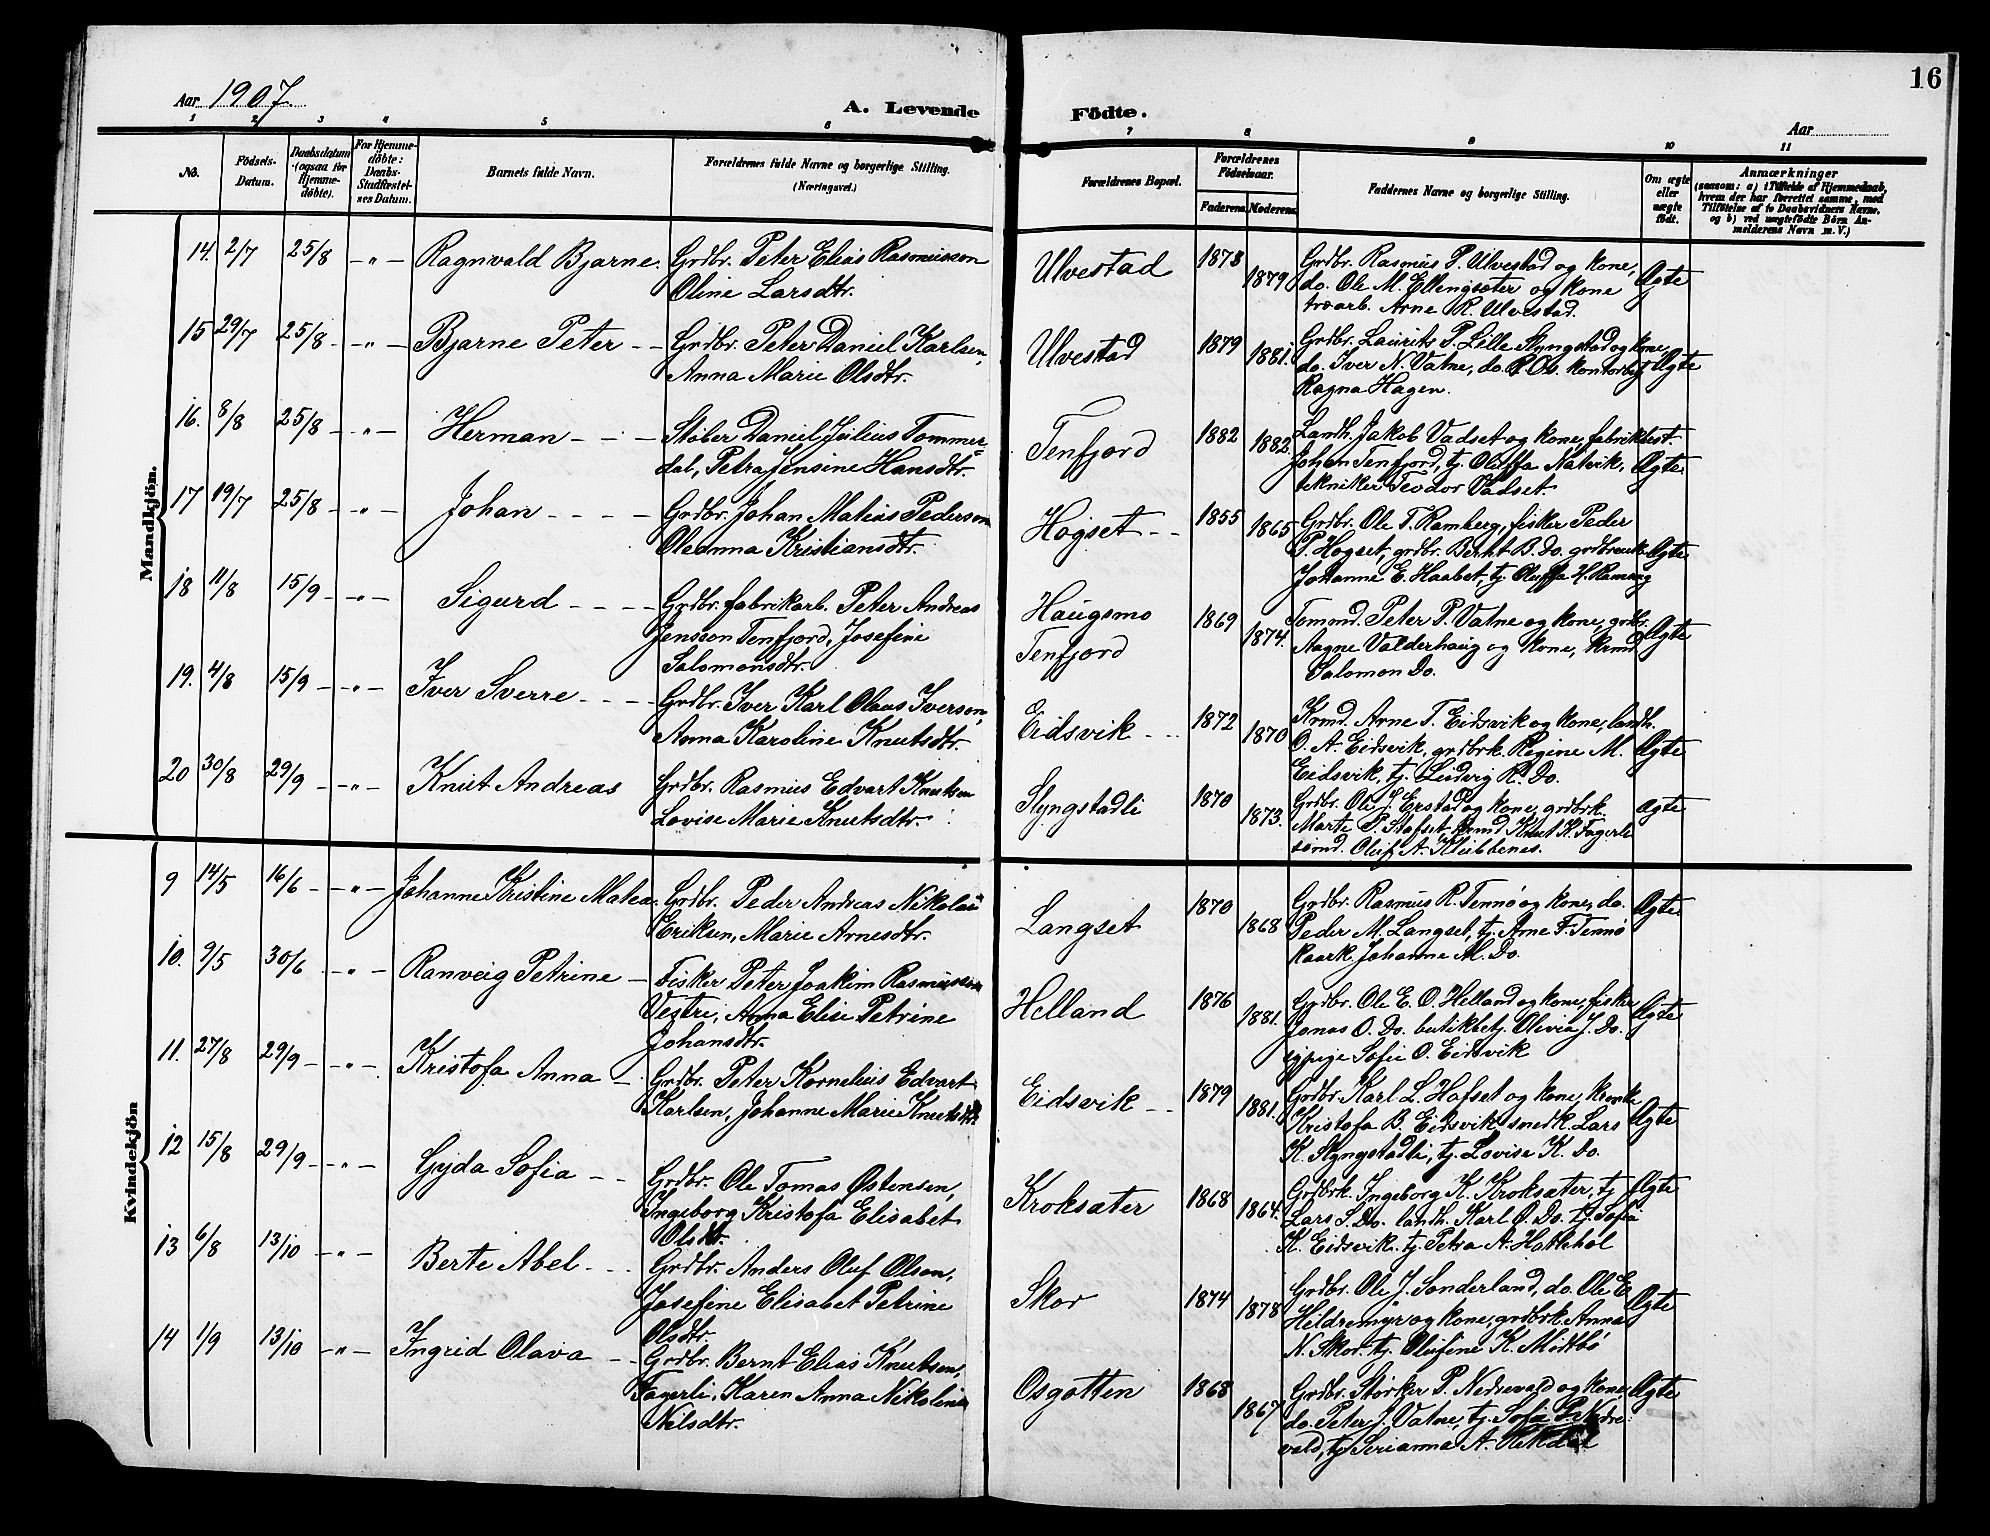 16
Aar 1907.
A. Levende
Födte.
Aar
1 2 3 4 5 6 7 8 9 10 11
No.
Födsels-Datum.
Daabsdatum (ogsaa for Hjemmedöbte).
For Hjemmedöbte: Daabs-Stadfæstelses Datum.
Barnets fulde Navn.
Forældrenes fulde Navne og borgerlige Stilling.
(Næringsvei.)
Forældrenes Bopæl.
Forældrenes Födselsaar.
Faderens. Moderens.
Faddernes Navne og borgerlige Stilling.
Om ægte eller uægte födt.
Anmærkninger
(saasom: a) i Tilfælde af Hjemmedaab, hvem der har forrettet samme, med Tilföielse af to Daabsvidners Navne, og b) ved uægtefödte Börn Anmelderens Navn m. V.)
Mandkjön.
14. 2/7 25/8 - " - Ragnvald Bjarne. Grdbr. Peter Elias Rasmusson
Oline Larsdtr.
Ulvestad 1878 1879 Grdbr. Rasmus P. Ulvestad og kone,
do. Ole M. Ellengsæter og kone
træarb. Arne R. Ulvestad.
Ægte
15 29/7 25/8 - " - Bjarne Peter - - Grdbr. Peter Daniel Karlsen,
Anna Marie Olsdtr.
Ulvestad 1879 1881. Grdbr. Laurits P. Lille Slyngstad og kone,
do. Iver N. Vatne, do. P. Os. kontorbest
Ragna Hagen.
Ægte
16. 8/8 25/8 - " - Herman - - - Støber Daniel Julius Tommer=
dal, Petra Jensine Hansdtr.
Tenfjord 1882 1882. Landh. Jakob Vadset og kone, fabrikbest.
Johan Tenfjord, tj. Oluffa Natvik,
tekniker Teodor Vadset.
Ægte
17 19/7 25/8 - " - Johan - - - - Grdbr. Johan Matias Pederson
Oleanna Kristiansdtr.
Hogset - - 1855 1865 Grdbr. Ole T. Ramberg, fisker Peder
P. Hogset, grdbr. Bernt B. Do. grdbrenk.
Johanne E. Haabet, tj. Oluffa H. Ramberg
Ægte
18 11/8 15/9 - " - Sigurd - - - - Grdbr. fabrikarb. Peter Andreas
Jensson Tenfjord, Josefine
Salomonsdtr.
Haugsmo
Tenfjord
1869 1874. Tømmd. Peter P. Vatne og kone, grdbr.
Aagne Valderhaug og kone, krmd.
Salomon Do.
Ægte
19. 4/8 15/9 - " - Iver Sverre - - - - Grdbr. Iver Karl Olaus Iverson,
Anna Karoline Knutsdtr.
Eidsvik - - - 1872 1870 Krmd. Arne T. Eidsvik og kone, landh.
O. A. Eidsvik, grdbrk. Regine M.
Eidsvik, tj. Ludvig R. Do.
Ægte
20 30/8 29/9 - " - Knut Andreas Grdbr. Rasmus Edvart Knutsen
Lovise Marie Knutsdtr.
Slyngstadli 1870 1873. Grdbr. Ole J. Erstad og kone, grdbrk.
Marte P. Stafset krmd Knut K. Fagerli
tømd. Oluf A. Klubbenes.
ægte
Kvindekjön
9 14/5 16/6 - " - Johanne Kristine Matea. Grdbr. Peder Andreas Nikolai
Eriksen, Marie Arnesdtr.
Langset 1870 1868 Grdbr. Rasmus R. Tennø og kone, do.
Peder M. Langset, tj. Arne F. Tennø
kaark. Johanne M. Do.
Ægte
10. 9/5 30/6 - " - Ranveig Petrine - Fisker Peter Joakim Rasmusson
Vestre, Anna Elise Petrine
Johansdtr.
Helland 1876 1881. Grdbr. Ole E. O. Helland og kone, fisker
Jonas O. Do. butikbetj. Olivia J. Do.
sypige Sofie O. Eidsvik
Ægte
11. 27/8 29/9 - " - Kristofa Anna - Grdbr. Peter Kornelius Edvart
Karlsen, Johanne Marie Knutsdtr.
Eidsvik - - 1879 1881. Grdbr. Karl L. Hafset og kone,
Kristofa B. Eidsvik snedk. Lars
K. Slyngstadli, tj. Lovise K. Do.
Ægte
12 15/8 29/9 - " - Gyda Sofia - - Grdbr. Ole Tomas Østensen,
Ingeborg Kristofa Elisabet
Olsdtr.
Kroksæter 1868 1864. Grdbrk. Ingeborg K. Kroksæter, tj
Lars S. Do. landh. Karl O. Do. tj. Sofia
K. Eidsvik. tj. Petra A. Hattehol
Ægte
13 6/8 13/10 - " - Berte Abel - - - Grdbr. Anders Oluf Olsen,
Josefine Elisabet Petrine
Olsdtr.
Skor 1874 1878 Grdbr. Ole J. Sønderland, do. Ole E.
Hildremyr og kone, grdbrk Anna
N. Skor. tj. Olufine K. Midtbø
Ægte
14 1/9 13/10 - " - Ingrid Olava - - Grdbr. Bernt Elias Knutson,
Fagerli, Karen Anna Nikoline
Nilsdtr.
Osgotten 1868 1867 Grdbr. Størker P. Nedrevald og kone
do. Peter J. Vatne, tj. Sofie P. Nedre
vald, tj Serianna A. Rekdal
Ægte